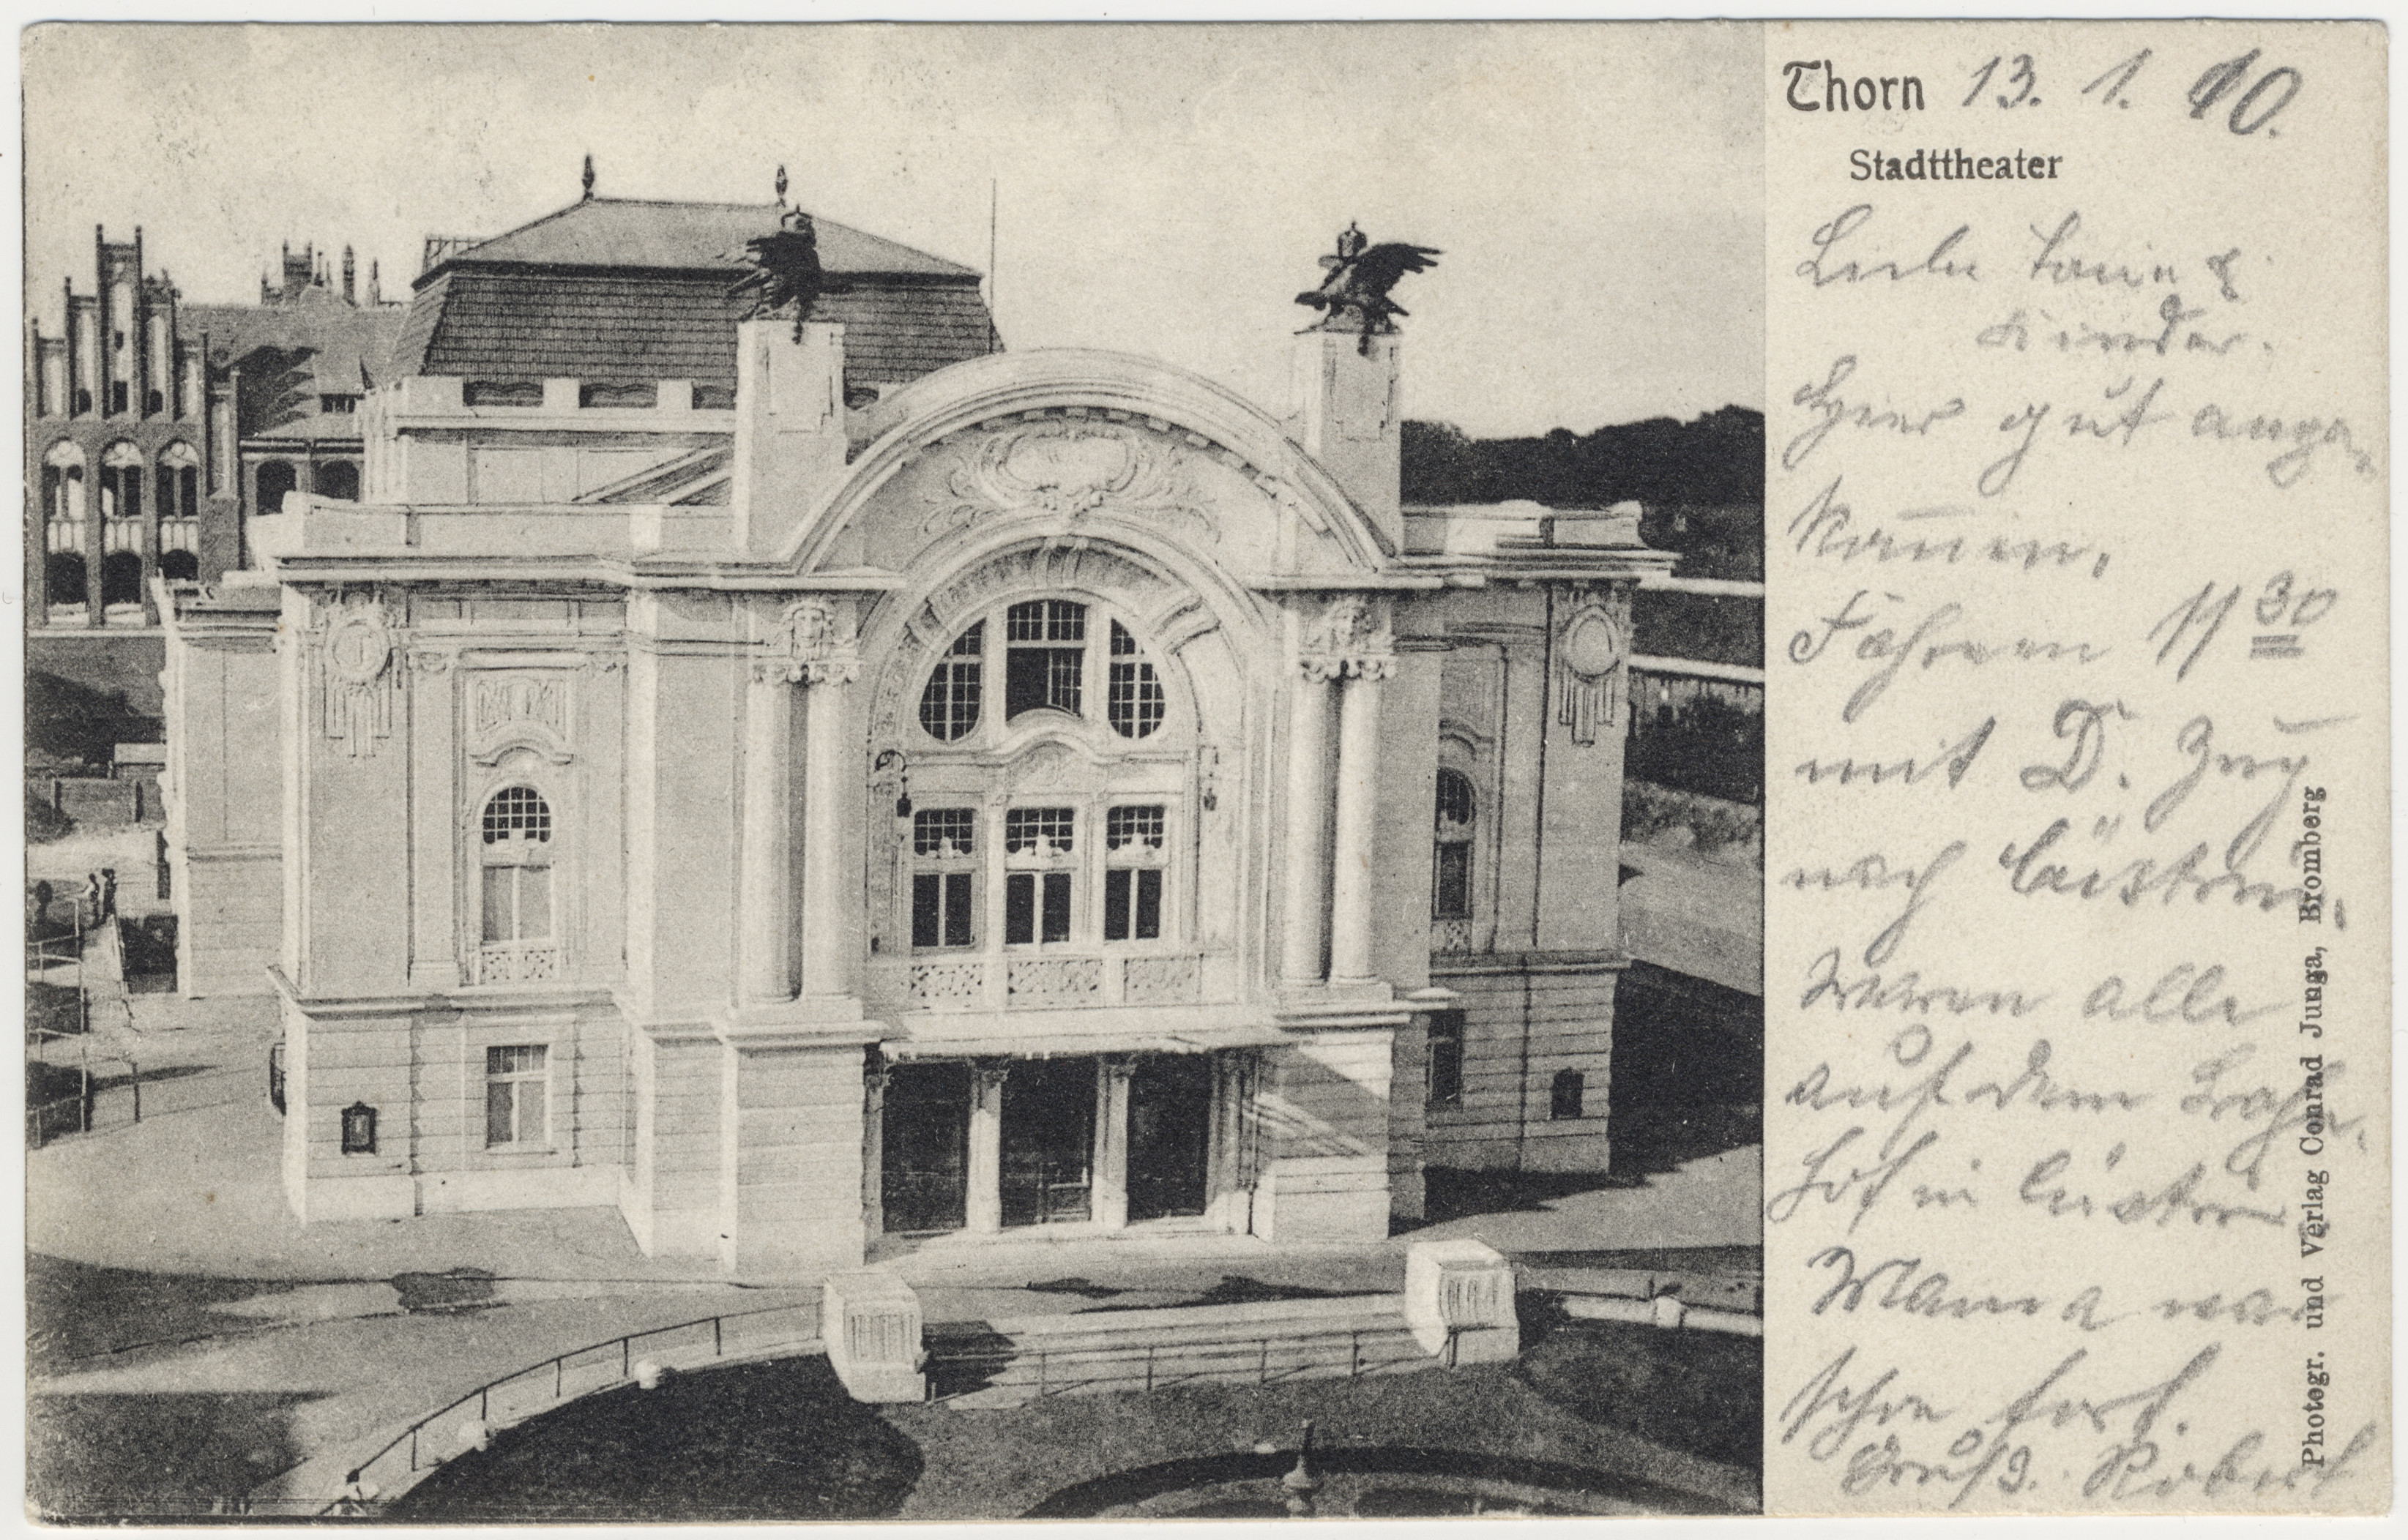 Thorn 13. 1. 10.
Stadttheater
Liebe &
Kinder.
Hier gut ange-
kom̅en,
Fahren 11 30
mit D. Zug
nach Cüstrin,
Waren alle
auf dem Bahn-
hof in Cüstrin
Mama war
schon fort.
Gruß. Robert
Photogr. und Verlag Conrad Junga, Bromberg